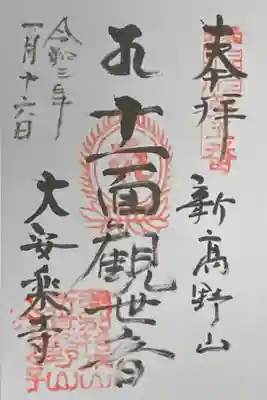 奉拝
新高野山
十一面観世音
大安楽寺
令和三年
一月十六日